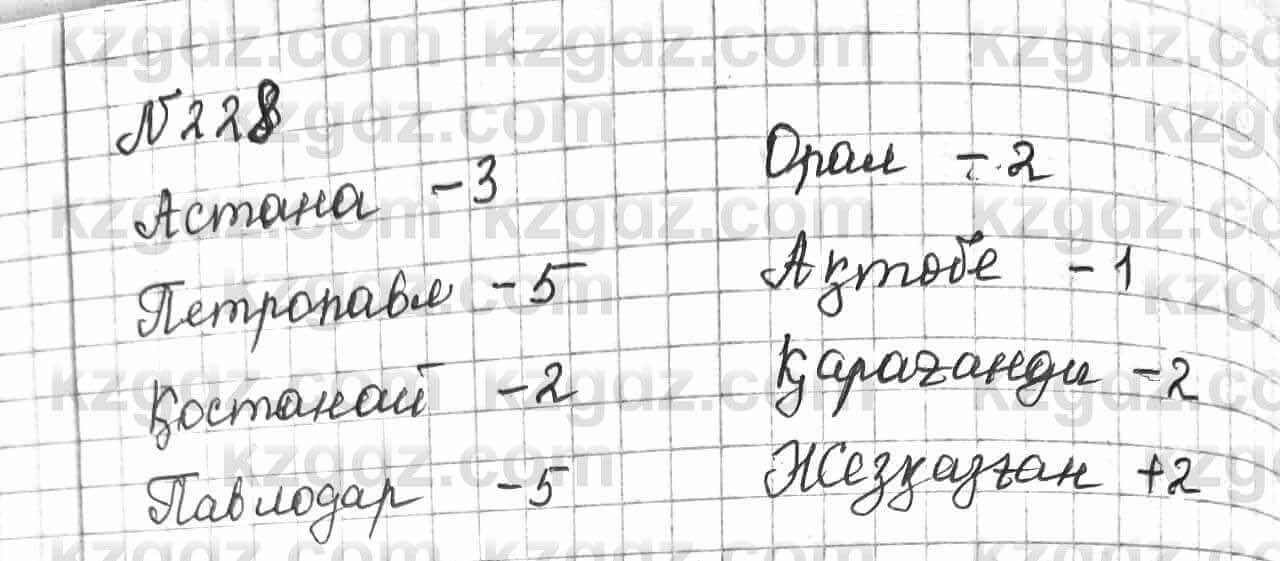 №228
Астана -3
Петропавл -5
Қостанай -2
Павлодар -5
Орал - 2
Ақтобе -1
Қарағанди -2
Жезқазған +2